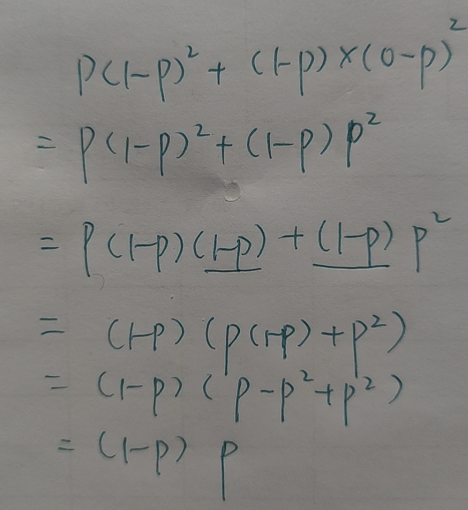 p(1-p)² + (1-p)×(0-p)²
= p(1-p)² + (1-p) p²
= p(1-p)(1-p) + (1-p) p²
= (1-p) (p(1-p) + p²)
= (1-p) (p-p²+p²)
= (1-p) p